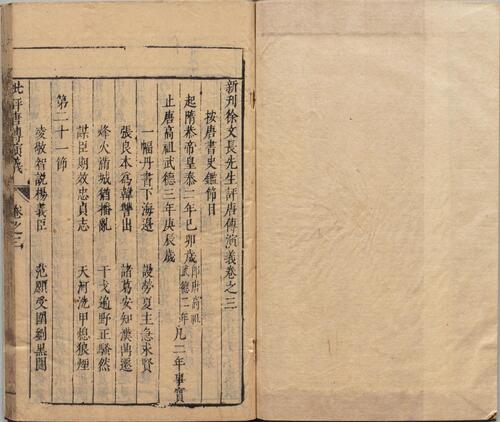 新刊徐文長先生評唐傳演義卷之三
按唐書史鑑節目
起隋恭帝皇泰二年己卯歲 即唐高祖武德二年
止唐高祖武德三年庚辰歲 凡二年事實
一幅丹書下海邊 謾勞夏主急求賢
張良本為韓讐出 諸葛安知漢禑遷
烽火滿城猶播亂 干戈遍野正騷然
謀臣期效忠貞志 天河洗甲熄狼煙
第二十一節
凌敬智說楊義臣 范願受圍劉黑闥
批評唐傳演義 卷之三